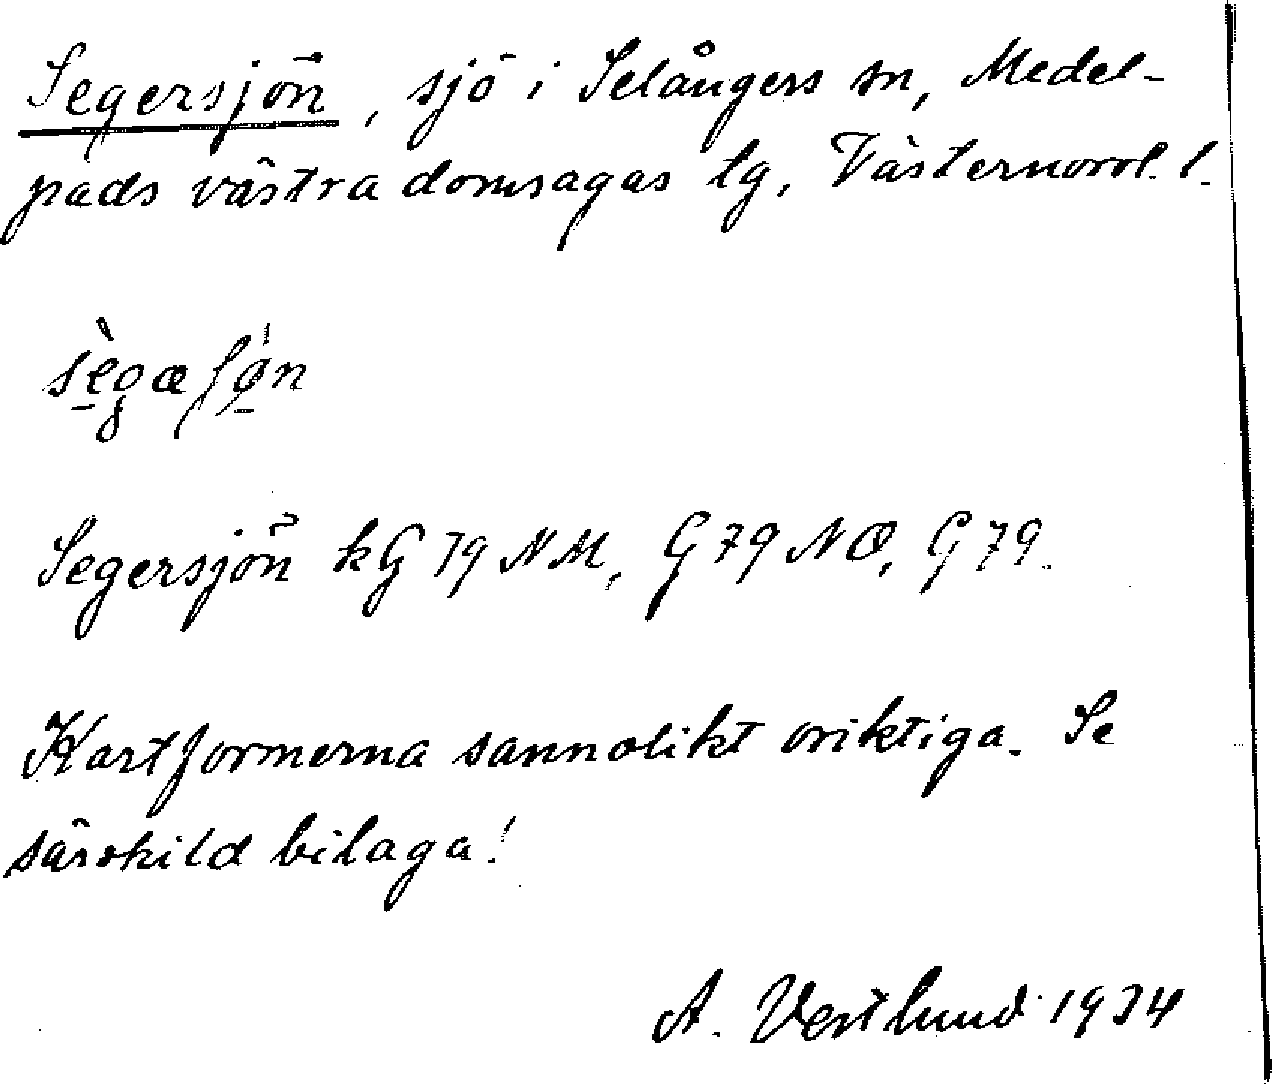 Segersjön, sjö i Selångers sn, Medel-
pads västra domsagas tg, Västernorrl. l.
sègæʃø̄n
Segersjön kG 79 NM, G 79 NO, G 79.
Kartformerna sannolikt oriktiga. Se
särskild bilaga!
A. Vestlund 1934